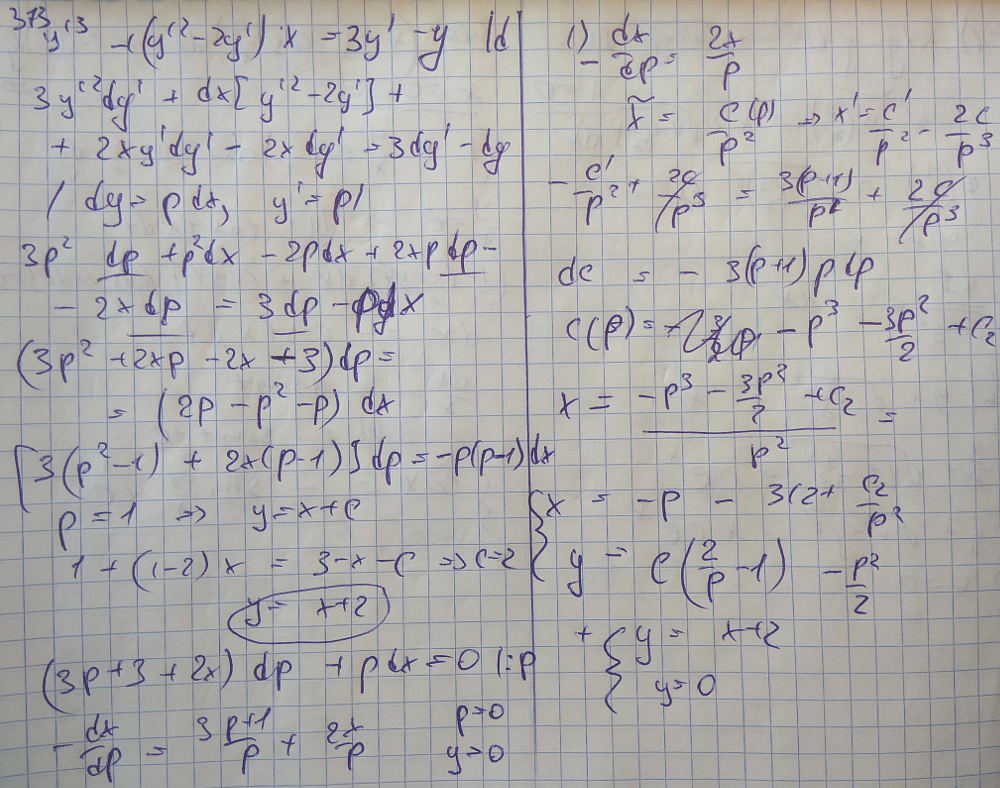 373
y'³ + (y'² - 2y') x = 3y' - y |d
3y'²dy' + dx[y'² - 2y'] +
+ 2xy'dy' - 2xdy' = 3dy' - dy
/ dy = pdx, y' = p /
3p² dp + p²dx - 2pdx + 2xpdp -
- 2xdp = 3dp - pdx
(3p² + 2xp - 2x + 3)dp =
= (2p - p² - p) dx
[3(p² - 1) + 2x(p - 1)]dp = -p(p - 1)dx
p = 1 ⇒ y = x + c
1 + (1 - 2)x = 3 - x - c ⇒ c = 2
y = x + 2
(3p + 3 + 2x) dp + pdx = 0 |:p
- dx/dp = 3 p+1/p + 2x/p
p = 0
y = 0
1) - dx/dp = 2x/p
x̃ = c(p)/p² ⇒ x' = c'/p² - 2c/p³
- c'/p² + 2c/p³ = 3(p+1)/p + 2c/p³
dc = - 3(p+1) p dp
c(p) = - p³ - 3p²/2 + c₂
x = (-p³ - 3p²/2 + c₂)/p² =
{ x = -p - 3/2 + c₂/p²
y = c(2/p - 1) - p²/2
+ { y = x + 2
y = 0